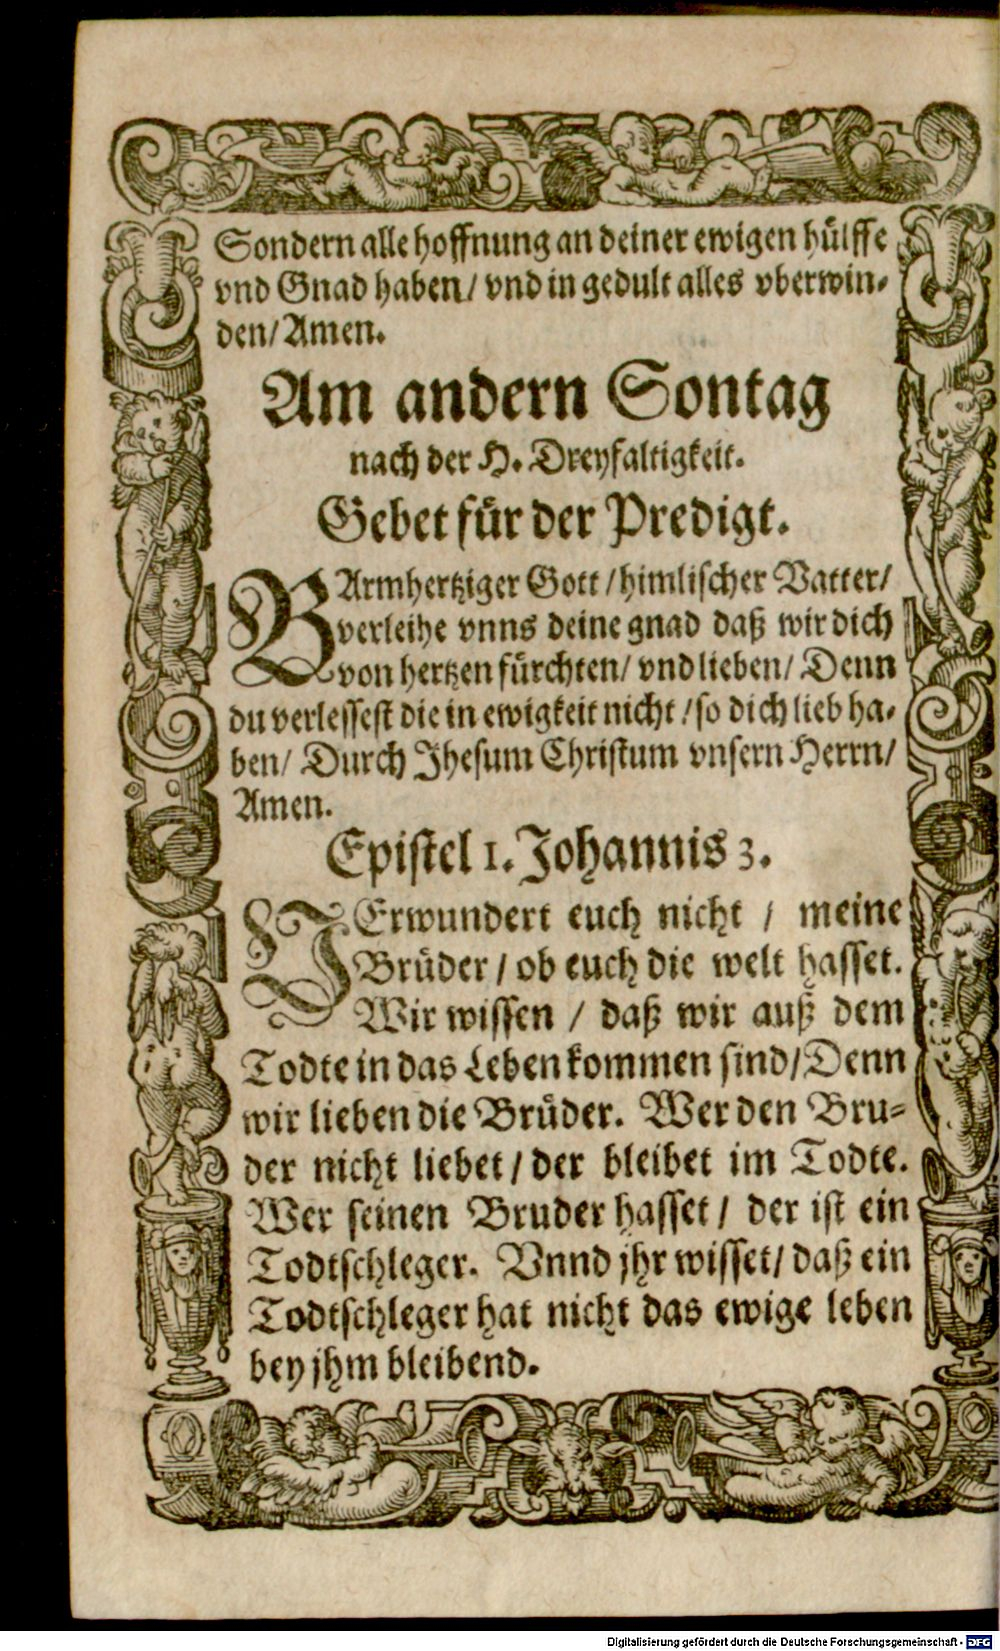 Sondern alle hoffnung an deiner ewigen hülffe
vnd Gnad haben/ vnd in gedult alles vberwin-
den/ Amen.
Am andern Sontag
nach der H. Dreyfaltigkeit.
Gebet für der Predigt.
BArmhertziger Gott / himlischer Vatter/
verleihe vnns deine gnad daß wir dich
von hertzen fürchten/ vnd lieben/ Denn
du verlessest die in ewigkeit nicht / so dich lieb ha-
ben/ Durch Jhesum Christum vnsern Herrn/
Amen.
Epistel 1. Johannis 3.
VErwundert euch nicht / meine
Brüder / ob euch die welt hasset.
Wir wissen / daß wir auß dem
Todte in das Leben kommen sind/ Denn
wir lieben die Brüder. Wer den Bru-
der nicht liebet / der bleibet im Todte.
Wer seinen Bruder hasset / der ist ein
Todtschleger. Vnnd jhr wisset/ daß ein
Todtschleger hat nicht das ewige leben
bey jhm bleibend.
Digitalisierung gefördert durch die Deutsche Forschungsgemeinschaft - DFG